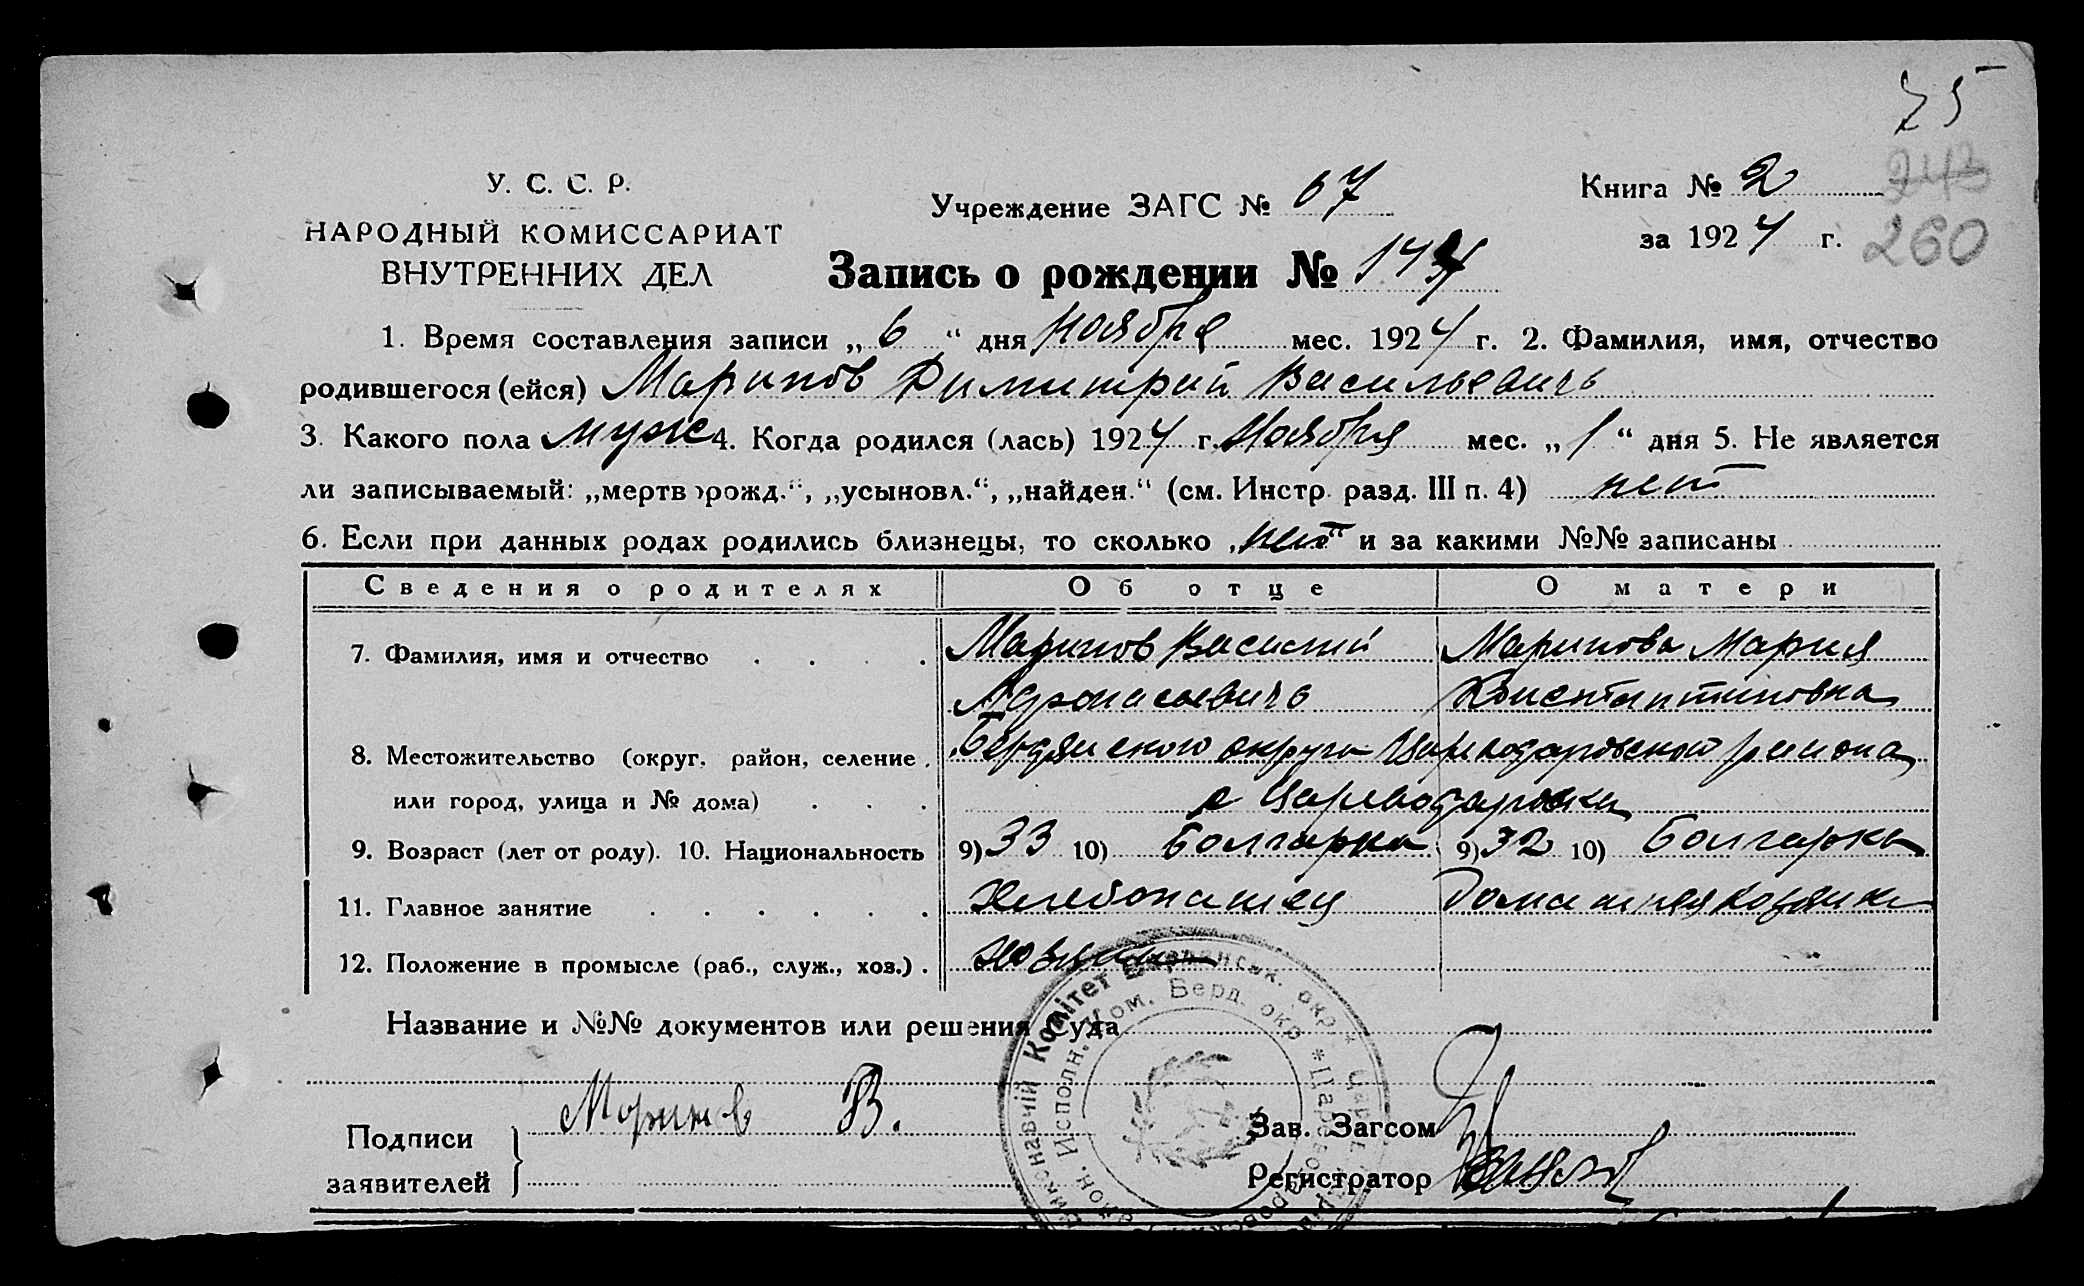 75
У. С. С. Р.
НАРОДНЫЙ КОМИССАРИАТ
ВНУТРЕННИХ ДЕЛ
Учреждение ЗАГС № 67
Книга № 2 243
за 1924 г. 260
Запись о рождении №
1. Время составления записи „ 6 “ дня Ноября мес. 1924 г. 2. Фамилия, имя, отчество
родившегося (ейся) Маринов Димитрий Васильевичъ
3. Какого пола муж 4. Когда родился (лась) 1924 г. Ноября мес. „ 1 “ дня 5. Не является
ли записываемый: „мертворожд.“, „усыновл.“, „найден.“ (см. Инстр. разд. III п. 4) нет
6. Если при данных родах родились близнецы, то сколько „нет“ и за какими №№ записаны
Сведения о родителях Об отце О матери
7. Фамилия, имя и отчество . . . . Маринов Василий Маринова Мария
Афонасьевичъ Константиновна
8. Местожительство (округ, район, селение, Бердянского округа Цареводаровского района
или город, улица и № дома) . . . с Цареводаровка
9. Возраст (лет от роду). 10. Национальность 9) 33 10) Болгарка 9) 32 10) Болгарка
11. Главное занятие . . . . . . Хлебопашец Домашняя хозяйка
12. Положение в промысле (раб., служ., хоз.) . хозяин
Название и №№ документов или решения Суда
Подписи
заявителей
Маринов В.
Зав. Загсом
Регистратор
Виконавчій Комітет Бердянськ. окр. *
Исполн. Ком. Берд. окр *